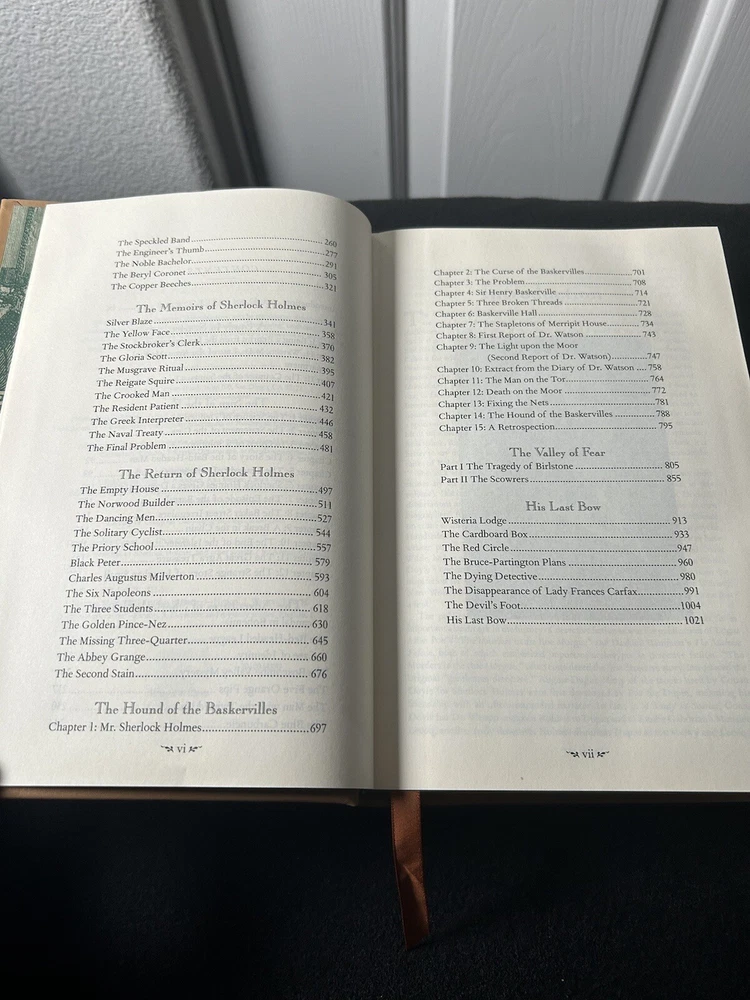 The Speckled Band 260
The Engineer's Thumb 277
The Noble Bachelor 291
The Beryl Coronet 305
The Copper Beeches 321
The Memoirs of Sherlock Holmes
Silver Blaze 341
The Yellow Face 358
The Stockbroker's Clerk 370
The Gloria Scott 382
The Musgrave Ritual 395
The Reigate Squire 407
The Crooked Man 421
The Resident Patient 432
The Greek Interpreter 446
The Naval Treaty 458
The Final Problem 481
The Return of Sherlock Holmes
The Empty House 497
The Norwood Builder 511
The Dancing Men 527
The Solitary Cyclist 544
The Priory School 557
Black Peter 579
Charles Augustus Milverton 593
The Six Napoleons 604
The Three Students 618
The Golden Pince-Nez 630
The Missing Three-Quarter 645
The Abbey Grange 660
The Second Stain 676
The Hound of the Baskervilles
Chapter 1: Mr. Sherlock Holmes 697
vi
Chapter 2: The Curse of the Baskervilles 701
Chapter 3: The Problem 708
Chapter 4: Sir Henry Baskerville 714
Chapter 5: Three Broken Threads 721
Chapter 6: Baskerville Hall 728
Chapter 7: The Stapletons of Merripit House 734
Chapter 8: First Report of Dr. Watson 743
Chapter 9: The Light upon the Moor
(Second Report of Dr. Watson) 747
Chapter 10: Extract from the Diary of Dr. Watson 758
Chapter 11: The Man on the Tor 764
Chapter 12: Death on the Moor 772
Chapter 13: Fixing the Nets 781
Chapter 14: The Hound of the Baskervilles 788
Chapter 15: A Retrospection 795
The Valley of Fear
Part I The Tragedy of Birlstone 805
Part II The Scowrers 855
His Last Bow
Wisteria Lodge 913
The Cardboard Box 933
The Red Circle 947
The Bruce-Partington Plans 960
The Dying Detective 980
The Disappearance of Lady Frances Carfax 991
The Devil's Foot 1004
His Last Bow 1021
vii